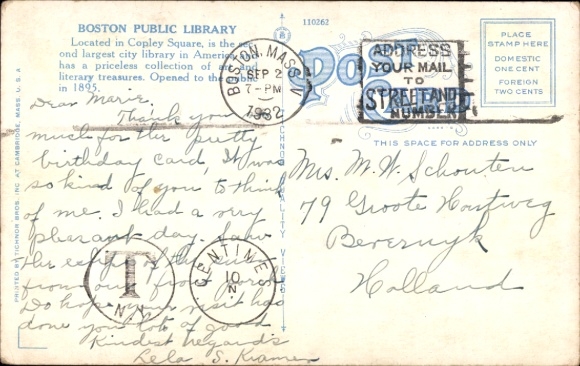 BOSTON PUBLIC LIBRARY
Located in Copley Square, is the sec-
ond largest city library in America and
has a priceless collection of art and
literary treasures. Opened to the public
in 1895.
110262
BOSTON, MASS.
SEP 2
7-PM
1932
ADDRESS
YOUR MAIL
TO
STREET AND
NUMBER
PLACE
STAMP HERE
DOMESTIC
ONE CENT
FOREIGN
TWO CENTS
THIS SPACE FOR ADDRESS ONLY
PRINTED BY TICHNOR BROS. INC. AT CAMBRIDGE, MASS., U.S.A.
QUALITY VIEWS
Dear Marie,
Thank you
much for the pretty
birthday card, It was
so kind of you to think
of me. I had a very
pleasant day. Saw
the eclipse of the
from our front porch
Do hope your visit has
done you lots of good
Kindest regards
Lela S. Kramer
T
N.Y.
CENTIMES
10
N.
Mrs. M. W. Schouten
79 Groote Houtweg
Beverwyk
Holland